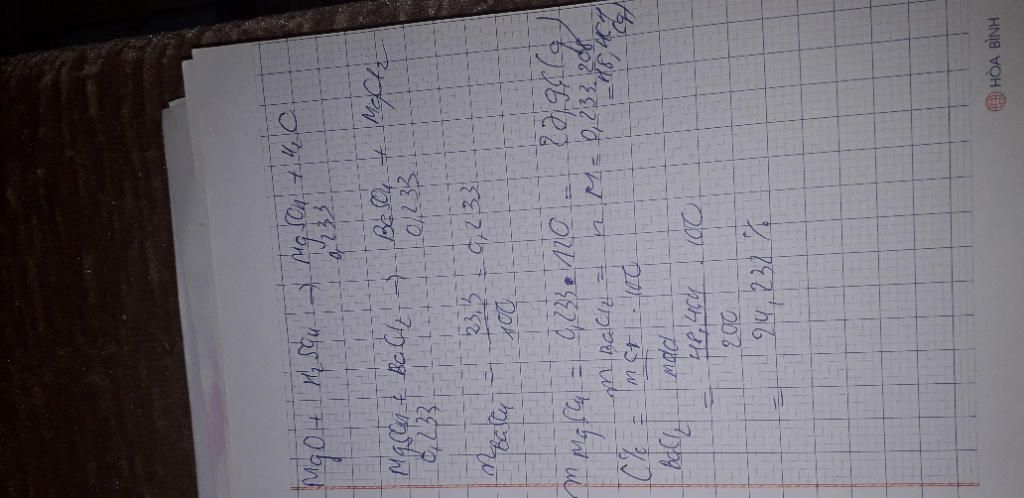 MgO + H2SO4 → MgSO4 + H2O
0,233
MgSO4 + BaCl2 → BaSO4 + MgCl2
0,233 0,233
nBaSO4 = 23,3 / 100 = 0,233
m MgSO4 = 0,233 . 120 = 27,96 (g)
m BaCl2 = n . M = 0,233 . 208
= 48,464 (g)
C% BaCl2 = mct / mdd . 100
= 48,464 / 200 . 100
= 24,232 %
HÒA BÌNH